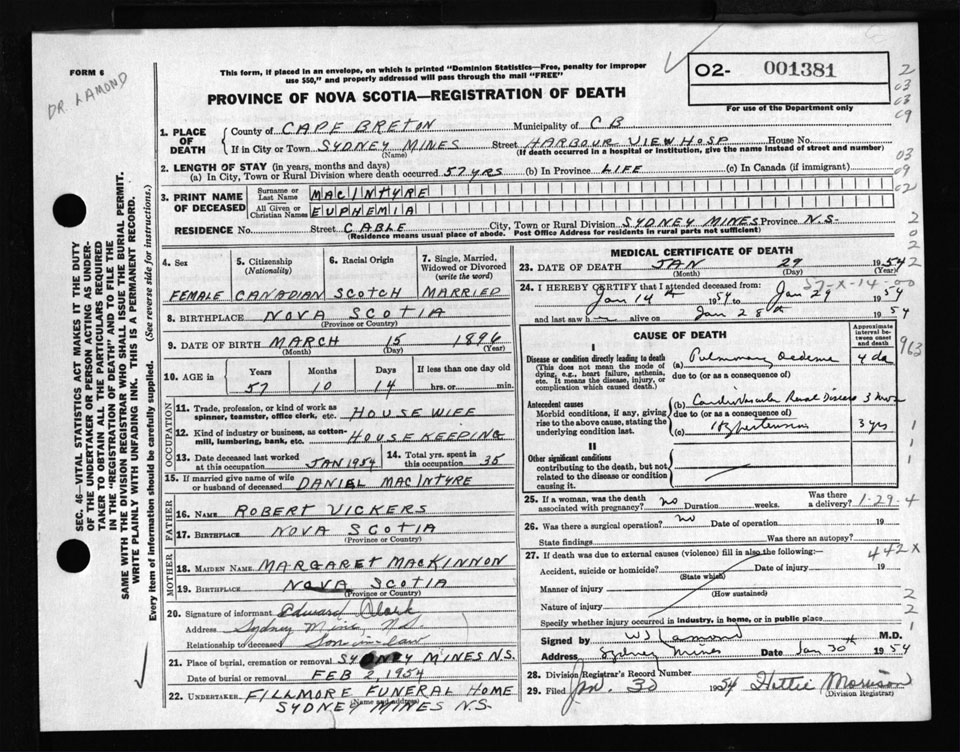 FORM 6
DR. LAMOND
This form, if placed in an envelope, on which is printed "Dominion Statistics—Free, penalty for improper
use $50," and properly addressed will pass through the mail "FREE"
PROVINCE OF NOVA SCOTIA—REGISTRATION OF DEATH
O2- 001381
For use of the Department only
1. PLACE OF DEATH
County of CAPE BRETON Municipality of C B
If in City or Town SYDNEY MINES Street HARBOUR VIEW HOSP House No.
(Name) (If death occurred in a hospital or institution, give the name instead of street and number)
2. LENGTH OF STAY (in years, months and days)
(a) In City, Town or Rural Division where death occurred 57 YRS (b) In Province LIFE (c) In Canada (if immigrant)
3. PRINT NAME OF DECEASED
Surname or Last Name MACINTYRE
All Given or Christian Names EUPHEMIA
RESIDENCE No. Street CABLE City, Town or Rural Division SYDNEY MINES Province N.S.
(Residence means usual place of abode. Post Office Address for residents in rural parts not sufficient)
4. Sex
FEMALE
5. Citizenship
(Nationality)
CANADIAN
6. Racial Origin
SCOTCH
7. Single, Married,
Widowed or Divorced
(write the word)
MARRIED
8. BIRTHPLACE NOVA SCOTIA
(Province or Country)
9. DATE OF BIRTH MARCH 15 1896
(Month) (Day) (Year)
10. AGE in Years Months Days If less than one day old
57 10 14 hrs. or min.
OCCUPATION
11. Trade, profession, or kind of work as
spinner, teamster, office clerk, etc. HOUSE WIFE
12. Kind of industry or business, as cotton-
mill, lumbering, bank, etc. HOUSE KEEPING
13. Date deceased last worked
at this occupation JAN 1954
14. Total yrs. spent in
this occupation 35
15. If married give name of wife
or husband of deceased DANIEL MACINTYRE
FATHER
16. NAME ROBERT VICKERS
17. BIRTHPLACE NOVA SCOTIA
(Province or Country)
MOTHER
18. MAIDEN NAME MARGARET MACKINNON
19. BIRTHPLACE NOVA SCOTIA
(Province or Country)
20. Signature of informant Edward Clark
Address Sydney Mines, N.S.
Relationship to deceased Son in law
21. Place of burial, cremation or removal SYDNEY MINES N.S.
Date of burial or removal FEB 2, 1954
22. UNDERTAKER FILLMORE FUNERAL HOME
(Name and address)
SYDNEY MINES N.S.
MEDICAL CERTIFICATE OF DEATH
23. DATE OF DEATH JAN 29 1954
(Month) (Day) (Year)
24. I HEREBY CERTIFY that I attended deceased from:
Jan 14th 1954 to Jan 29 1954
and last saw h alive on Jan 28th 1954
CAUSE OF DEATH
Approximate
interval be-
tween onset
and death
I
Disease or condition directly leading to death
(This does not mean the mode of
dying, e.g., heart failure, asthenia,
etc. It means the disease, injury, or
complication which caused death.)
(a) Pulmonary Oedema 4 da
due to (or as a consequence of)
Antecedent causes
Morbid conditions, if any, giving
rise to the above cause, stating the
underlying condition last.
(b) Cardio Vascular Renal Disease 3 mos
due to (or as a consequence of)
(c) Hypertension 3 yrs
II
Other significant conditions
contributing to the death, but not
related to the disease or condition
causing it.
25. If a woman, was the death
associated with pregnancy? no Duration weeks. Was there
a delivery? 1-29-4
26. Was there a surgical operation? no Date of operation 19
State findings Was there an autopsy?
27. If death was due to external causes (violence) fill in also the following:—
442X
Accident, suicide or homicide? Date of injury 19
(State which)
Manner of injury
(How sustained)
Nature of injury
Specify whether injury occurred in industry, in home, or in public place
Signed by W S Lamond M.D.
Address Sydney Mines Date Jan 30th 1954
28. Division Registrar's Record Number
29. Filed Jan. 30 1954 Hattie Morrison
(Division Registrar)
SEC. 46—VITAL STATISTICS ACT MAKES IT THE DUTY
OF THE UNDERTAKER OR PERSON ACTING AS UNDER-
TAKER TO OBTAIN ALL THE PARTICULARS REQUIRED
IN THE "REGISTRATION OF DEATH" AND TO FILE THE
SAME WITH THE DIVISION REGISTRAR WHO SHALL ISSUE THE BURIAL PERMIT.
WRITE PLAINLY WITH UNFADING INK. THIS IS A PERMANENT RECORD.
Every item of information should be carefully supplied. (See reverse side for instructions.)
2
03
03
09
03
09
02
2
0
2
2
963
1
1
1
2
2
1